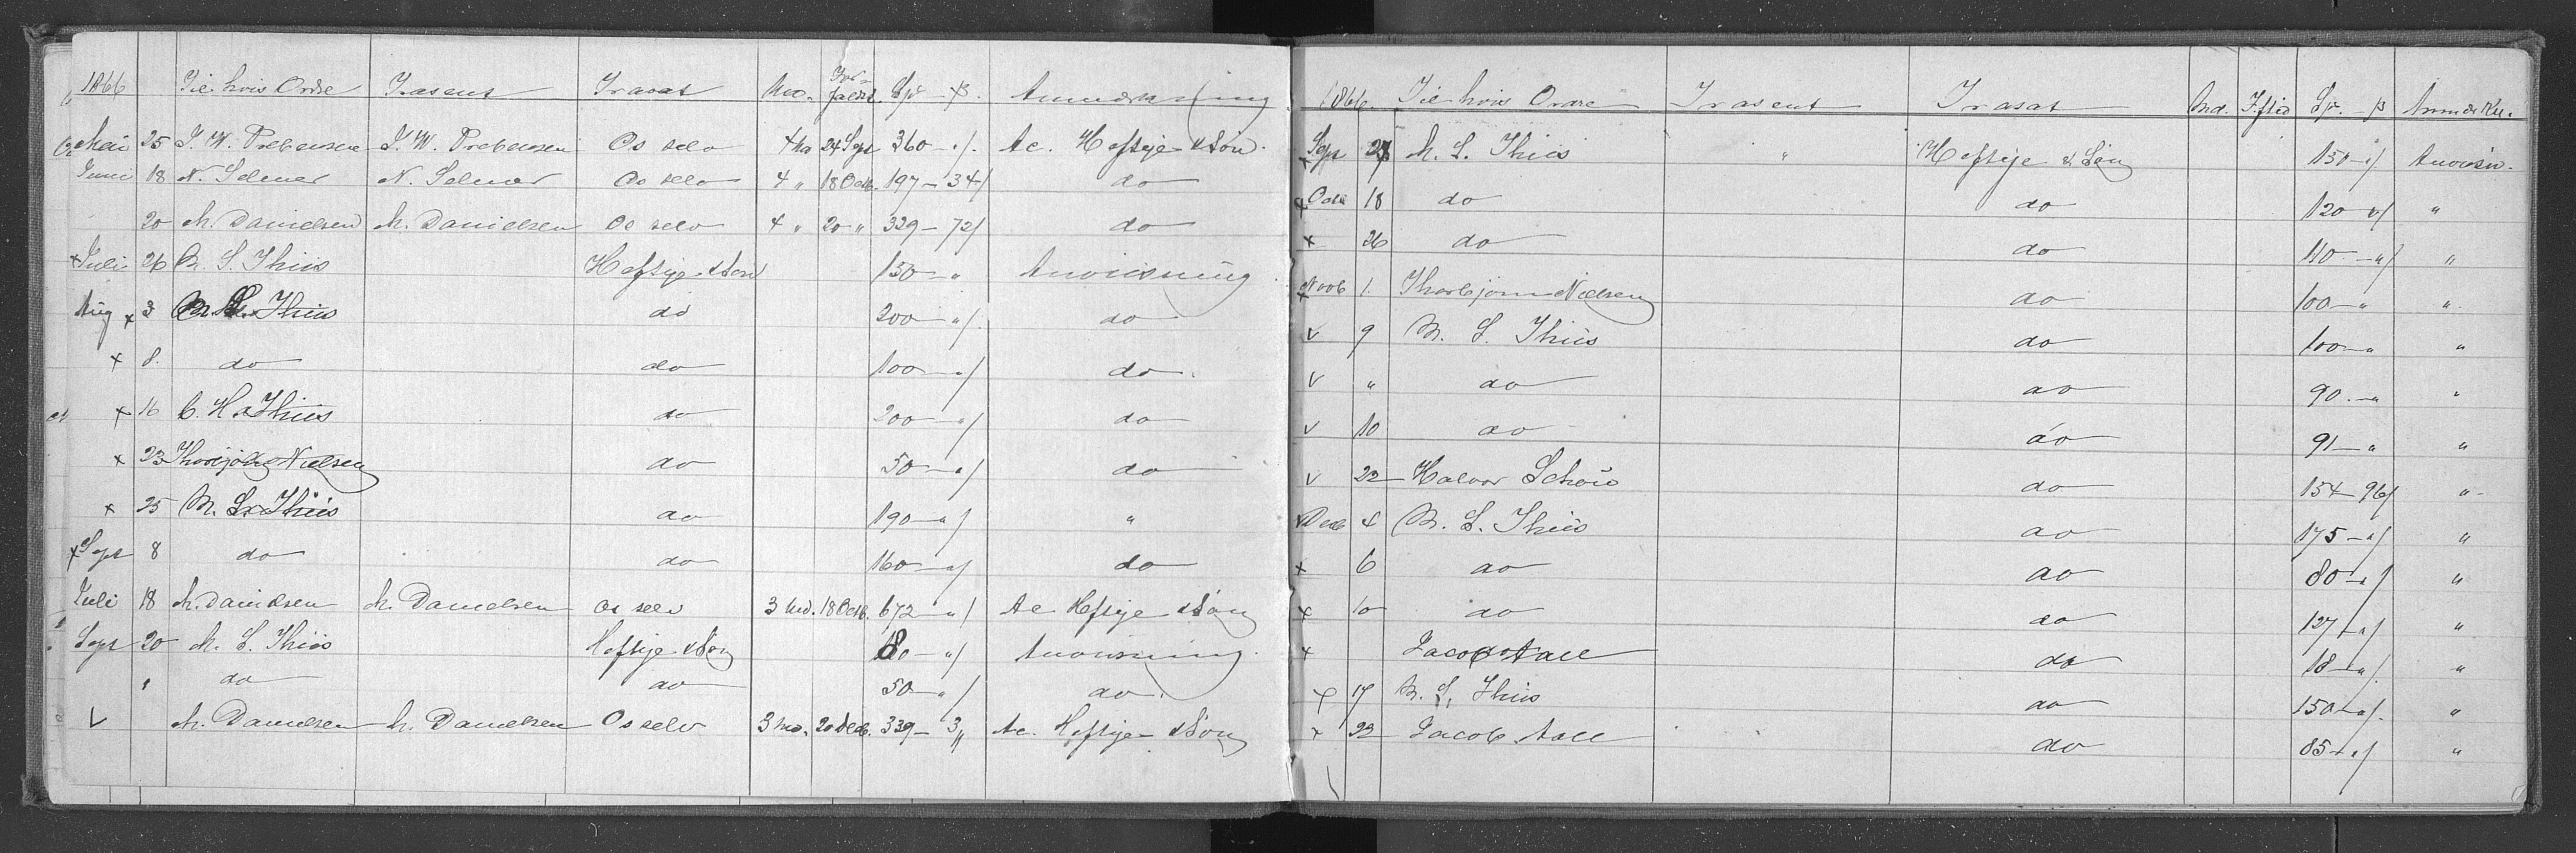 1866 Til hvis Ordre Trasent Trasat Md. For-faldst. Spd. - β. Anmærkning
Mai 25 J. W. Prebensen J. W. Prebensen Os selv 4 Md 24 Sept 360 - "/. Ac. Heftye & Søn.
Juni 18 N. Selmer N. Selmer Os selv 4 " 18 Octb. 197 - 34/ do
20 M. Danielsen M. Danielsen Os selv 4 " 20 " 329 - 72/ do
x Juli 26 M. S. Thiis Heftye & Søn 150 - " Anviisning
Aug x 3 M. S. Thiis do 200 - "/. do
x 8. do do 100 - "/ do.
x 16 C. H. Thiis do 200 - "/ do
x 23 Thorbjørn Nielsen do 50 - "/ do
x 25 M. S. Thiis do 190 - "/ "
x Sept 8 do do 160 - "/ do
Juli 18 M. Danielsen M. Danielsen Os selv 3 Md. 18 Octb. 672 - "/ Ac Heftye & Søn
Sept 20 M. S. Thiis Heftye & Søn 180 - "/ Anviisning.
" do do 50 - "/ do.
V M. Danielsen M. Danielsen Os selv 3 Md. 20 Decb. 339 - 3 " Ac. Heftye & Søn
1866. Til hvis Ordre Trasent Trasat Md. Fftid Spd. - β Anmærkn.
x Sept 27 M. S. Thiis " Heftye & Søn 150 - "/ Anviisn.
x Octb 18 do do 120 - "/ "
x 26 do do 110 - "/ "
x Novb 1. Thorbjørn Nielsen do 100 - " "
V 9 M. S. Thiis do 100 - " "
V " do do 90. - " "
V 10 do do 91 - " "
V 22 Halvor Schou do 154 - 96/ "
x Decb 4 M. S. Thiis do 175 - "/ "
x 6 do do 80 - "/ "
x 10 do do 127 - "/ "
x Jacob Aall do 18 - "/. "
x 17 M. S. Thiis do 150 - "/. "
x 22 Jacob Aall do 85 - "/ "